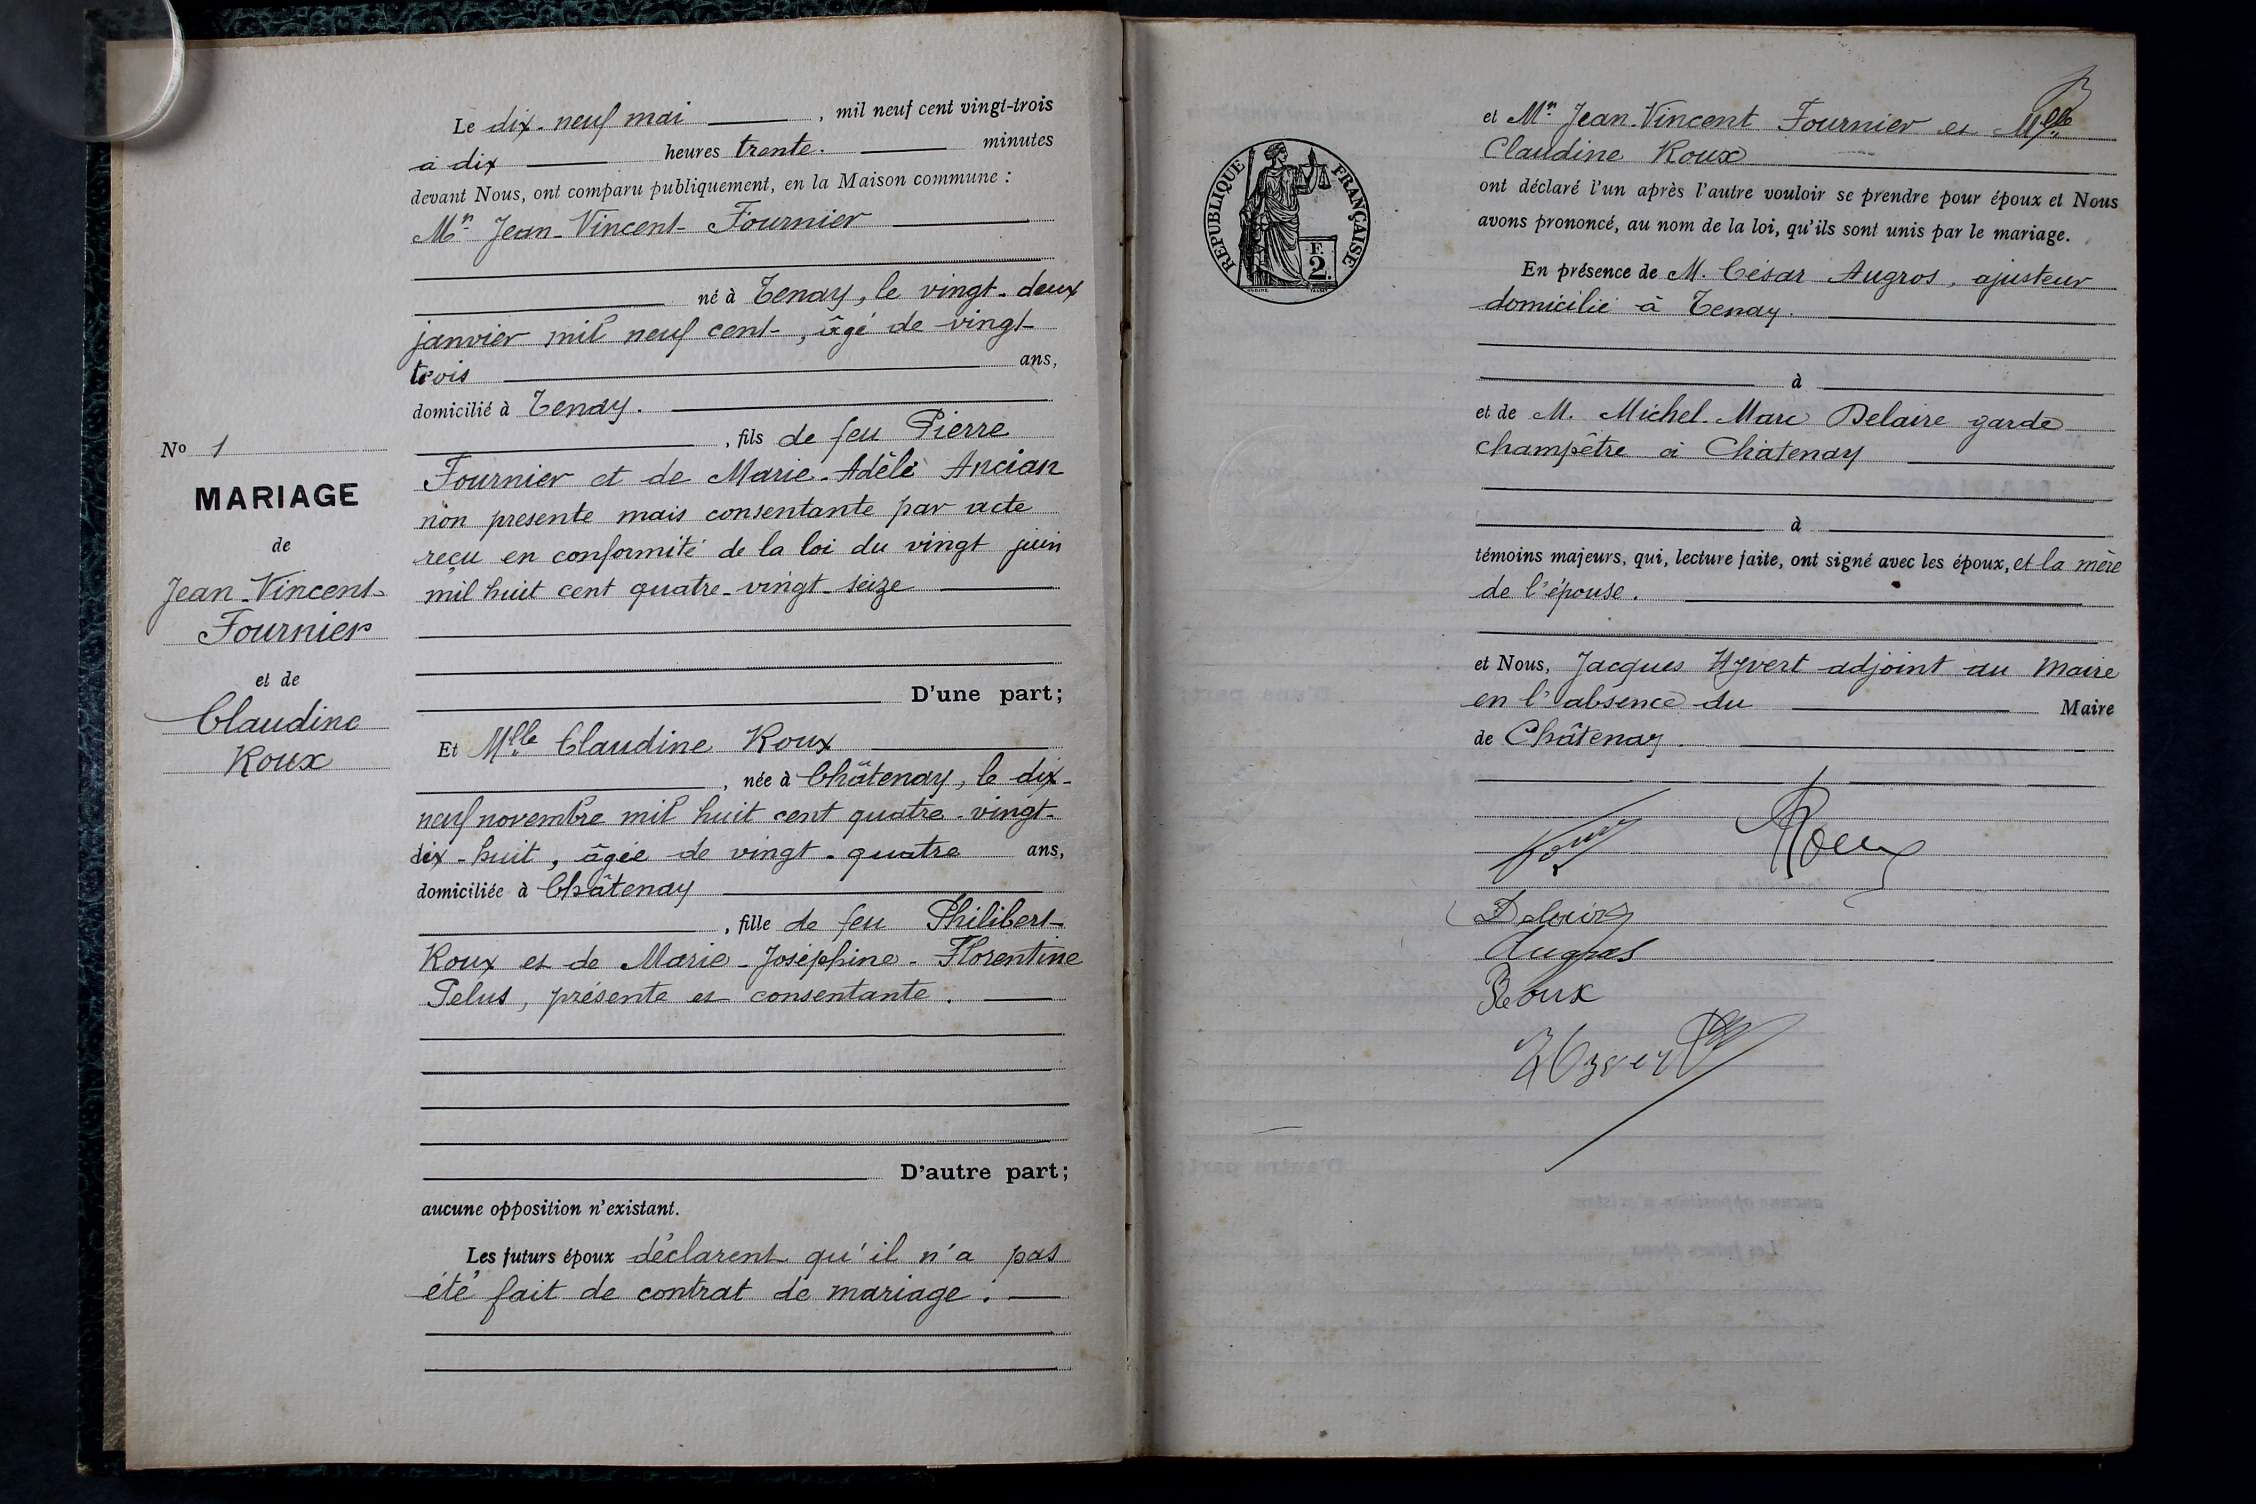 N° 1
MARIAGE
de
Jean-Vincent
Fournier
et de
Claudine
Roux
Le dix-neuf mai, mil neuf cent vingt-trois
à dix heures trente. minutes
devant Nous, ont comparu publiquement, en la Maison commune :
Mr Jean-Vincent Fournier
né à Tenay, le vingt-deux
janvier mil neuf cent, âgé de vingt-
trois ans,
domicilié à Tenay.
, fils de feu Pierre
Fournier et de Marie-Adèle Ancian
non presente mais consentante par acte
reçu en conformité de la loi du vingt juin
mil huit cent quatre-vingt-seize
D'une part;
Et Mlle Claudine Roux
, née à Châtenay, le dix-
neuf novembre mil huit cent quatre-vingt-
dix-huit, âgée de vingt-quatre ans,
domiciliée à Châtenay
, fille de feu Philibert
Roux et de Marie-Joséphine-Florentine
Pelus, présente et consentante.
D'autre part;
aucune opposition n'existant.
Les futurs époux déclarent qu'il n'a pas
été fait de contrat de mariage.
RÉPUBLIQUE FRANÇAISE
F.
2.
et Mr Jean-Vincent Fournier et Mlle
Claudine Roux
ont déclaré l'un après l'autre vouloir se prendre pour époux et Nous
avons prononcé, au nom de la loi, qu'ils sont unis par le mariage.
En présence de M. César Augros, ajusteur
domicilié à Tenay.
à
et de M. Michel-Marc Delaire garde
champêtre à Châtenay
à
témoins majeurs, qui, lecture faite, ont signé avec les époux, et la mère
de l'épouse.
et Nous, Jacques Hyvert adjoint au Maire
en l'absence du Maire
de Châtenay.
Roux
Augros
Roux
Hyvert